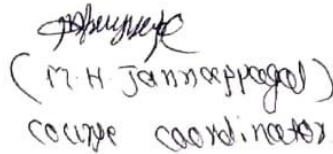 (M.H. Jannappagol)
course coordinator